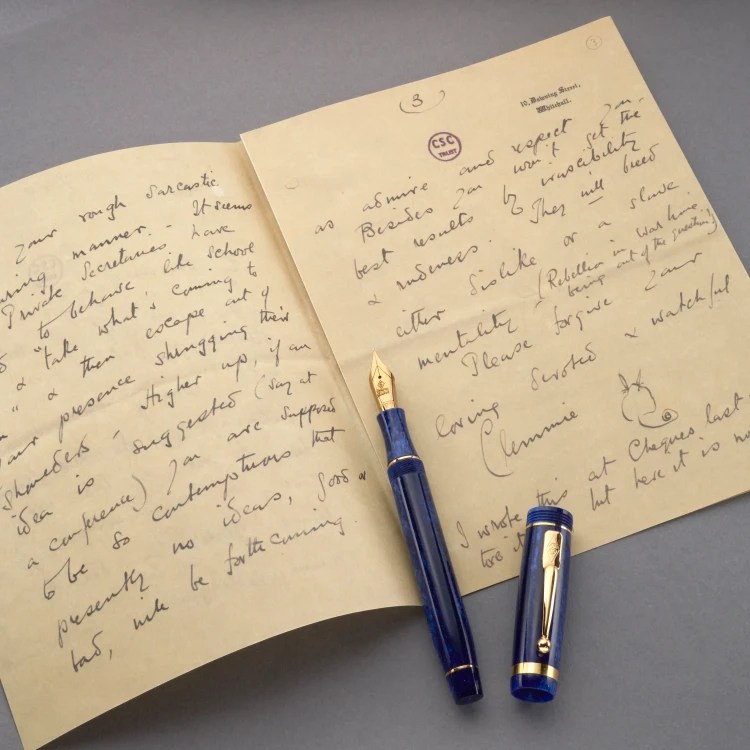 your rough sarcastic
manner - It seems
Private Secretaries have
to behave like school
& "take what's coming to
" & then escape out of
your presence shrugging their
shoulders - Higher up, if an
idea is suggested (say at
a conference) you are supposed
to be so contemptuous that
presently no ideas, good or
bad, will be forthcoming.
(3)
3
10, Downing Street,
Whitehall.
CSC
TRUST
as admire and respect you -
Besides you won't get the
best results by irascibility
& rudeness. They will breed
either dislike or a slave
mentality - (Rebellion in War time
being out of the question!)
Please forgive your
loving devoted & watchful
Clemmie
I wrote this at Chequers last
tore it but here it is now